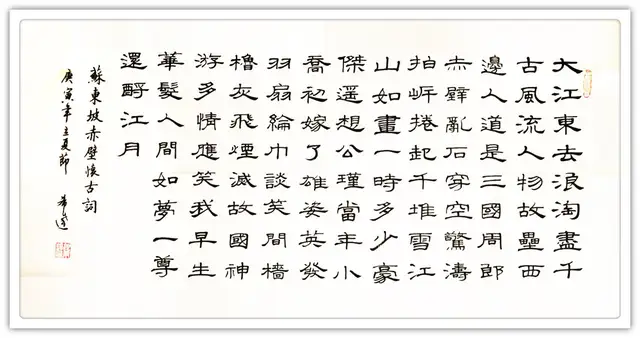 大江東去浪淘盡千
古風流人物故壘西
邊人道是三國周郎
赤壁亂石穿空驚濤
拍岸捲起千堆雪江
山如畫一時多少豪
傑遥想公瑾當年小
喬初嫁了雄姿英發
羽扇綸巾談笑間檣
櫓灰飛煙滅故國神
游多情應笑我早生
華髮人間如夢一尊
還酹江月
蘇東坡赤壁懷古詞
庚寅年立夏節